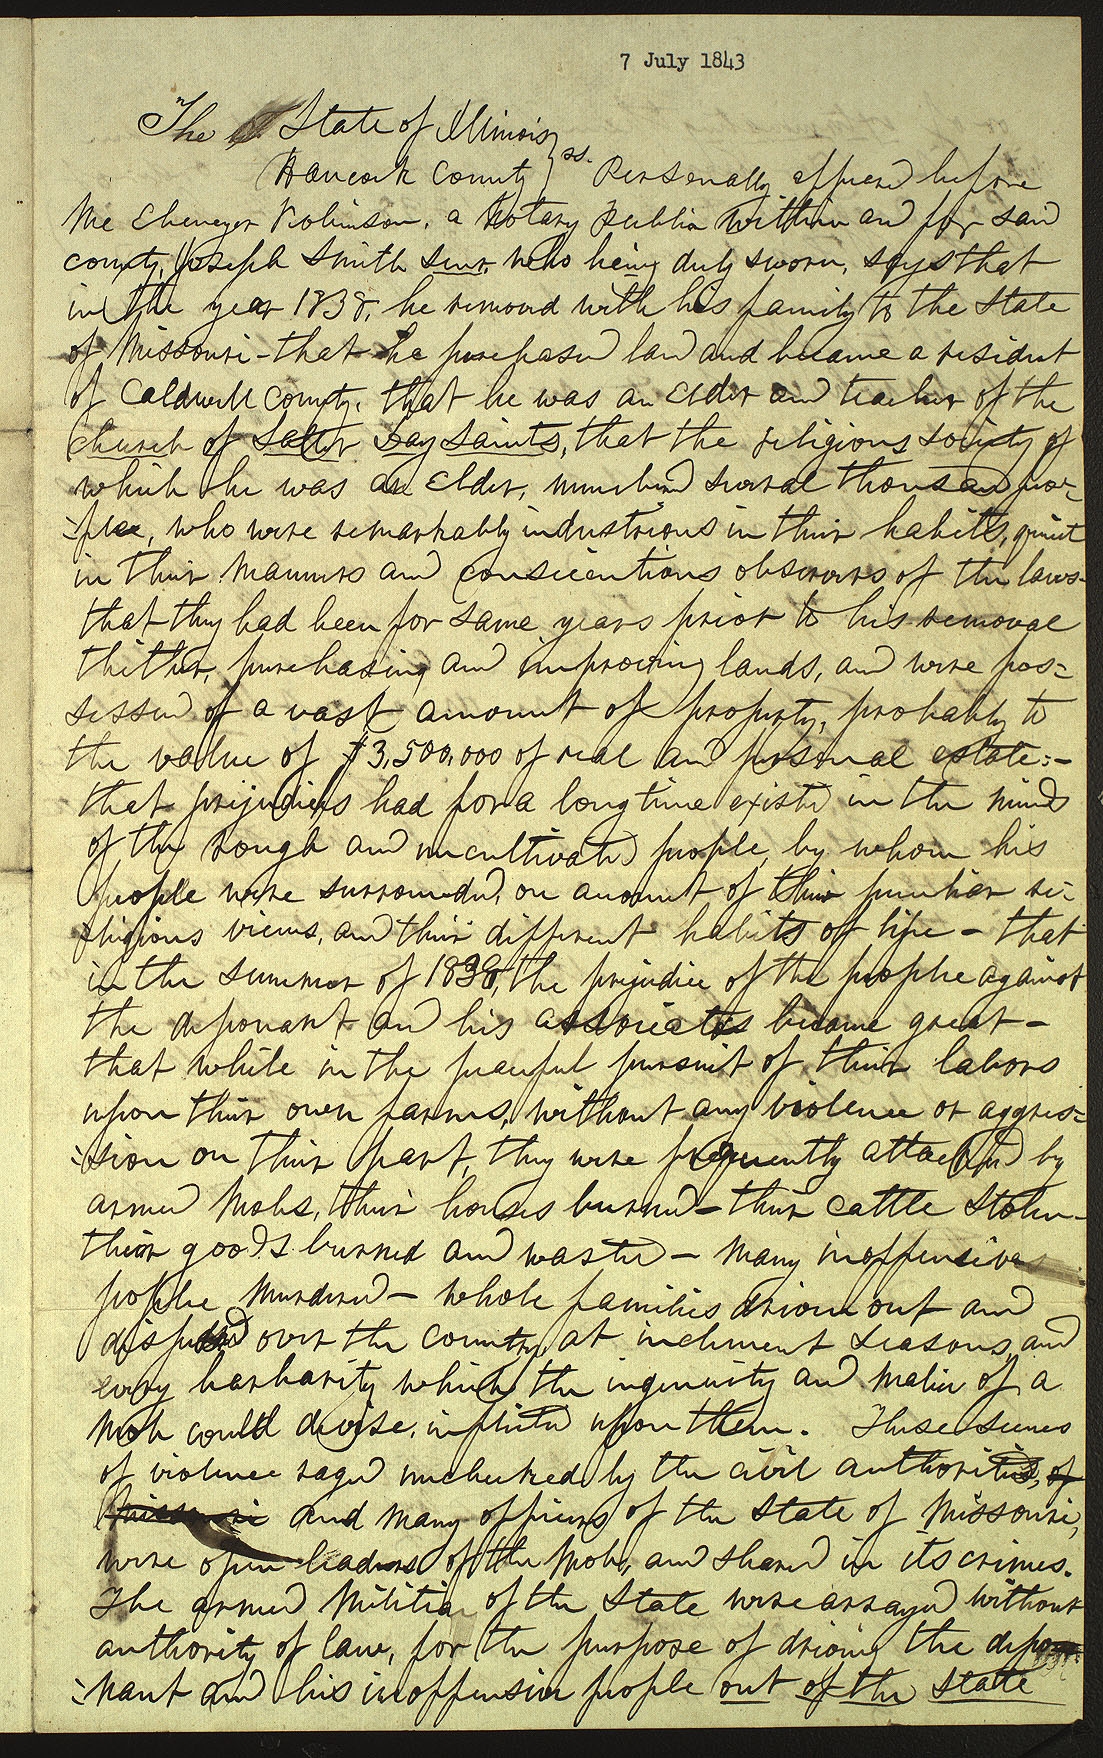 7 July 1843
The State of Illinois
Hancock County } ss. Personally appeared before
me Ebenezer Robinson, a Notary Public within and for said
county, Joseph Smith Senr. who being duly sworn, says that
in the year 1838, he removed with his family to the State
of Missouri - that he purchased land and became a resident
of Caldwell County, that he was an Elder and teacher of the
Church of Latter Day Saints, that the religious society of
which he was an Elder, numbered several thousand peo-
-ple, who were remarkably industrious in their habits, quiet
in their manners and conscientious observers of the laws-
that they had been for some years prior to his removal
thither, purchasing and improving lands, and were pos=
sessed of a vast amount of property, probably to
the value of $3,500,000 of real and personal estate:-
that prejudices had for a long time existed in the minds
of the rough and uncultivated people, by whom his
people were surrounded, on account of their peculiar re-
-ligious views, and their different habits of life - that
in the summer of 1838, the prejudice of the people against
the deponant and his associates became great -
that while in the peaceful pursuit of their labors
upon their own farms, without any violence or aggres=
-sion on their part, they were frequently attacked by
armed mobs, their houses burned - their cattle stolen -
their goods burned and wasted - many inoffensive
people murdered - whole families driven out and
dispersed over the country, at inclement seasons, and
every barbarity which the ingenuity and malice of a
mob could devise, inflicted upon them. These scenes
of violence raged unchecked by the civil authorities, of
Missouri and many officers of the State of Missouri,
were open leaders of the mobs, and shared in its crimes.
The armed militia of the State were arrayed without
authority of law, for the purpose of driving the depo-
-nant and his inoffensive people out of the State